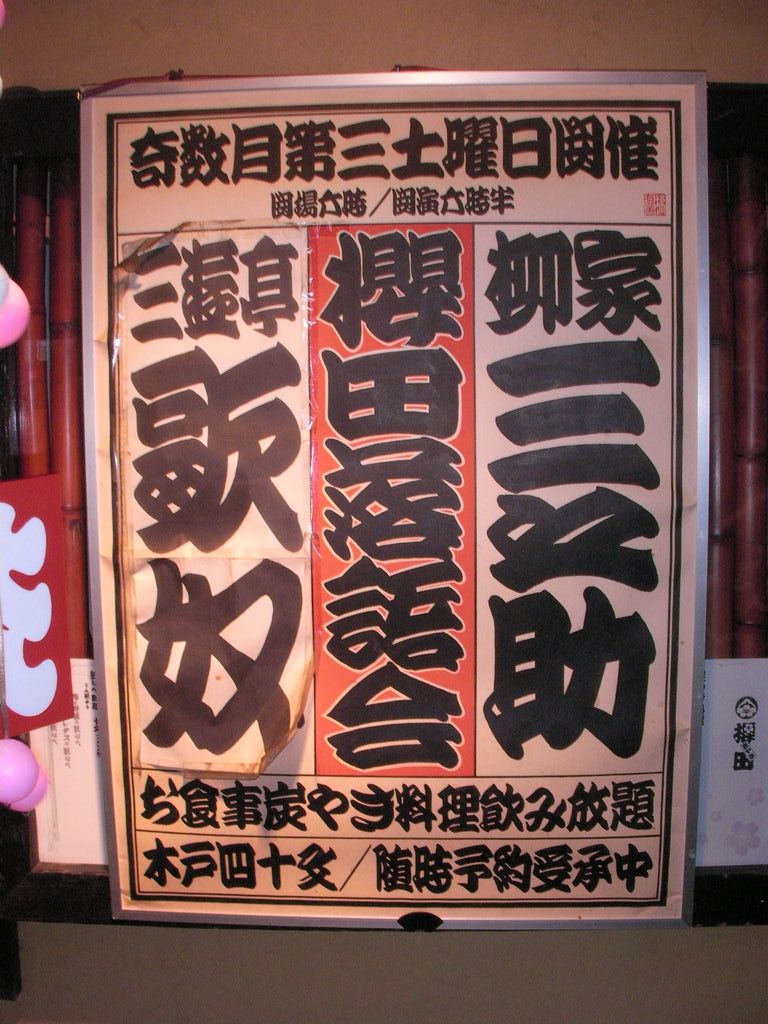 奇数月第三土曜日開催
開場六時/開演六時半
柳家
三之助
櫻田落語会
三遊亭
歌奴
お食事炭やき料理飲み放題
木戸四十文/随時予約受承中
櫻田